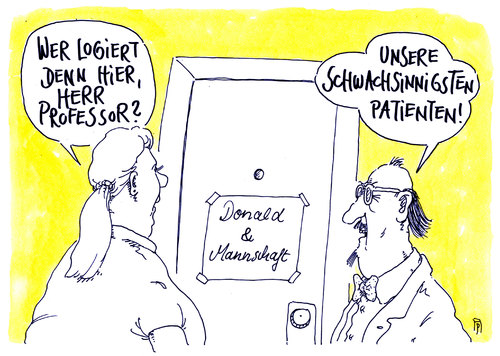 WER LOGIERT
DENN HIER,
HERR
PROFESSOR?
UNSERE
SCHWACHSINNIGSTEN
PATIENTEN!
Donald
&
Mannschaft